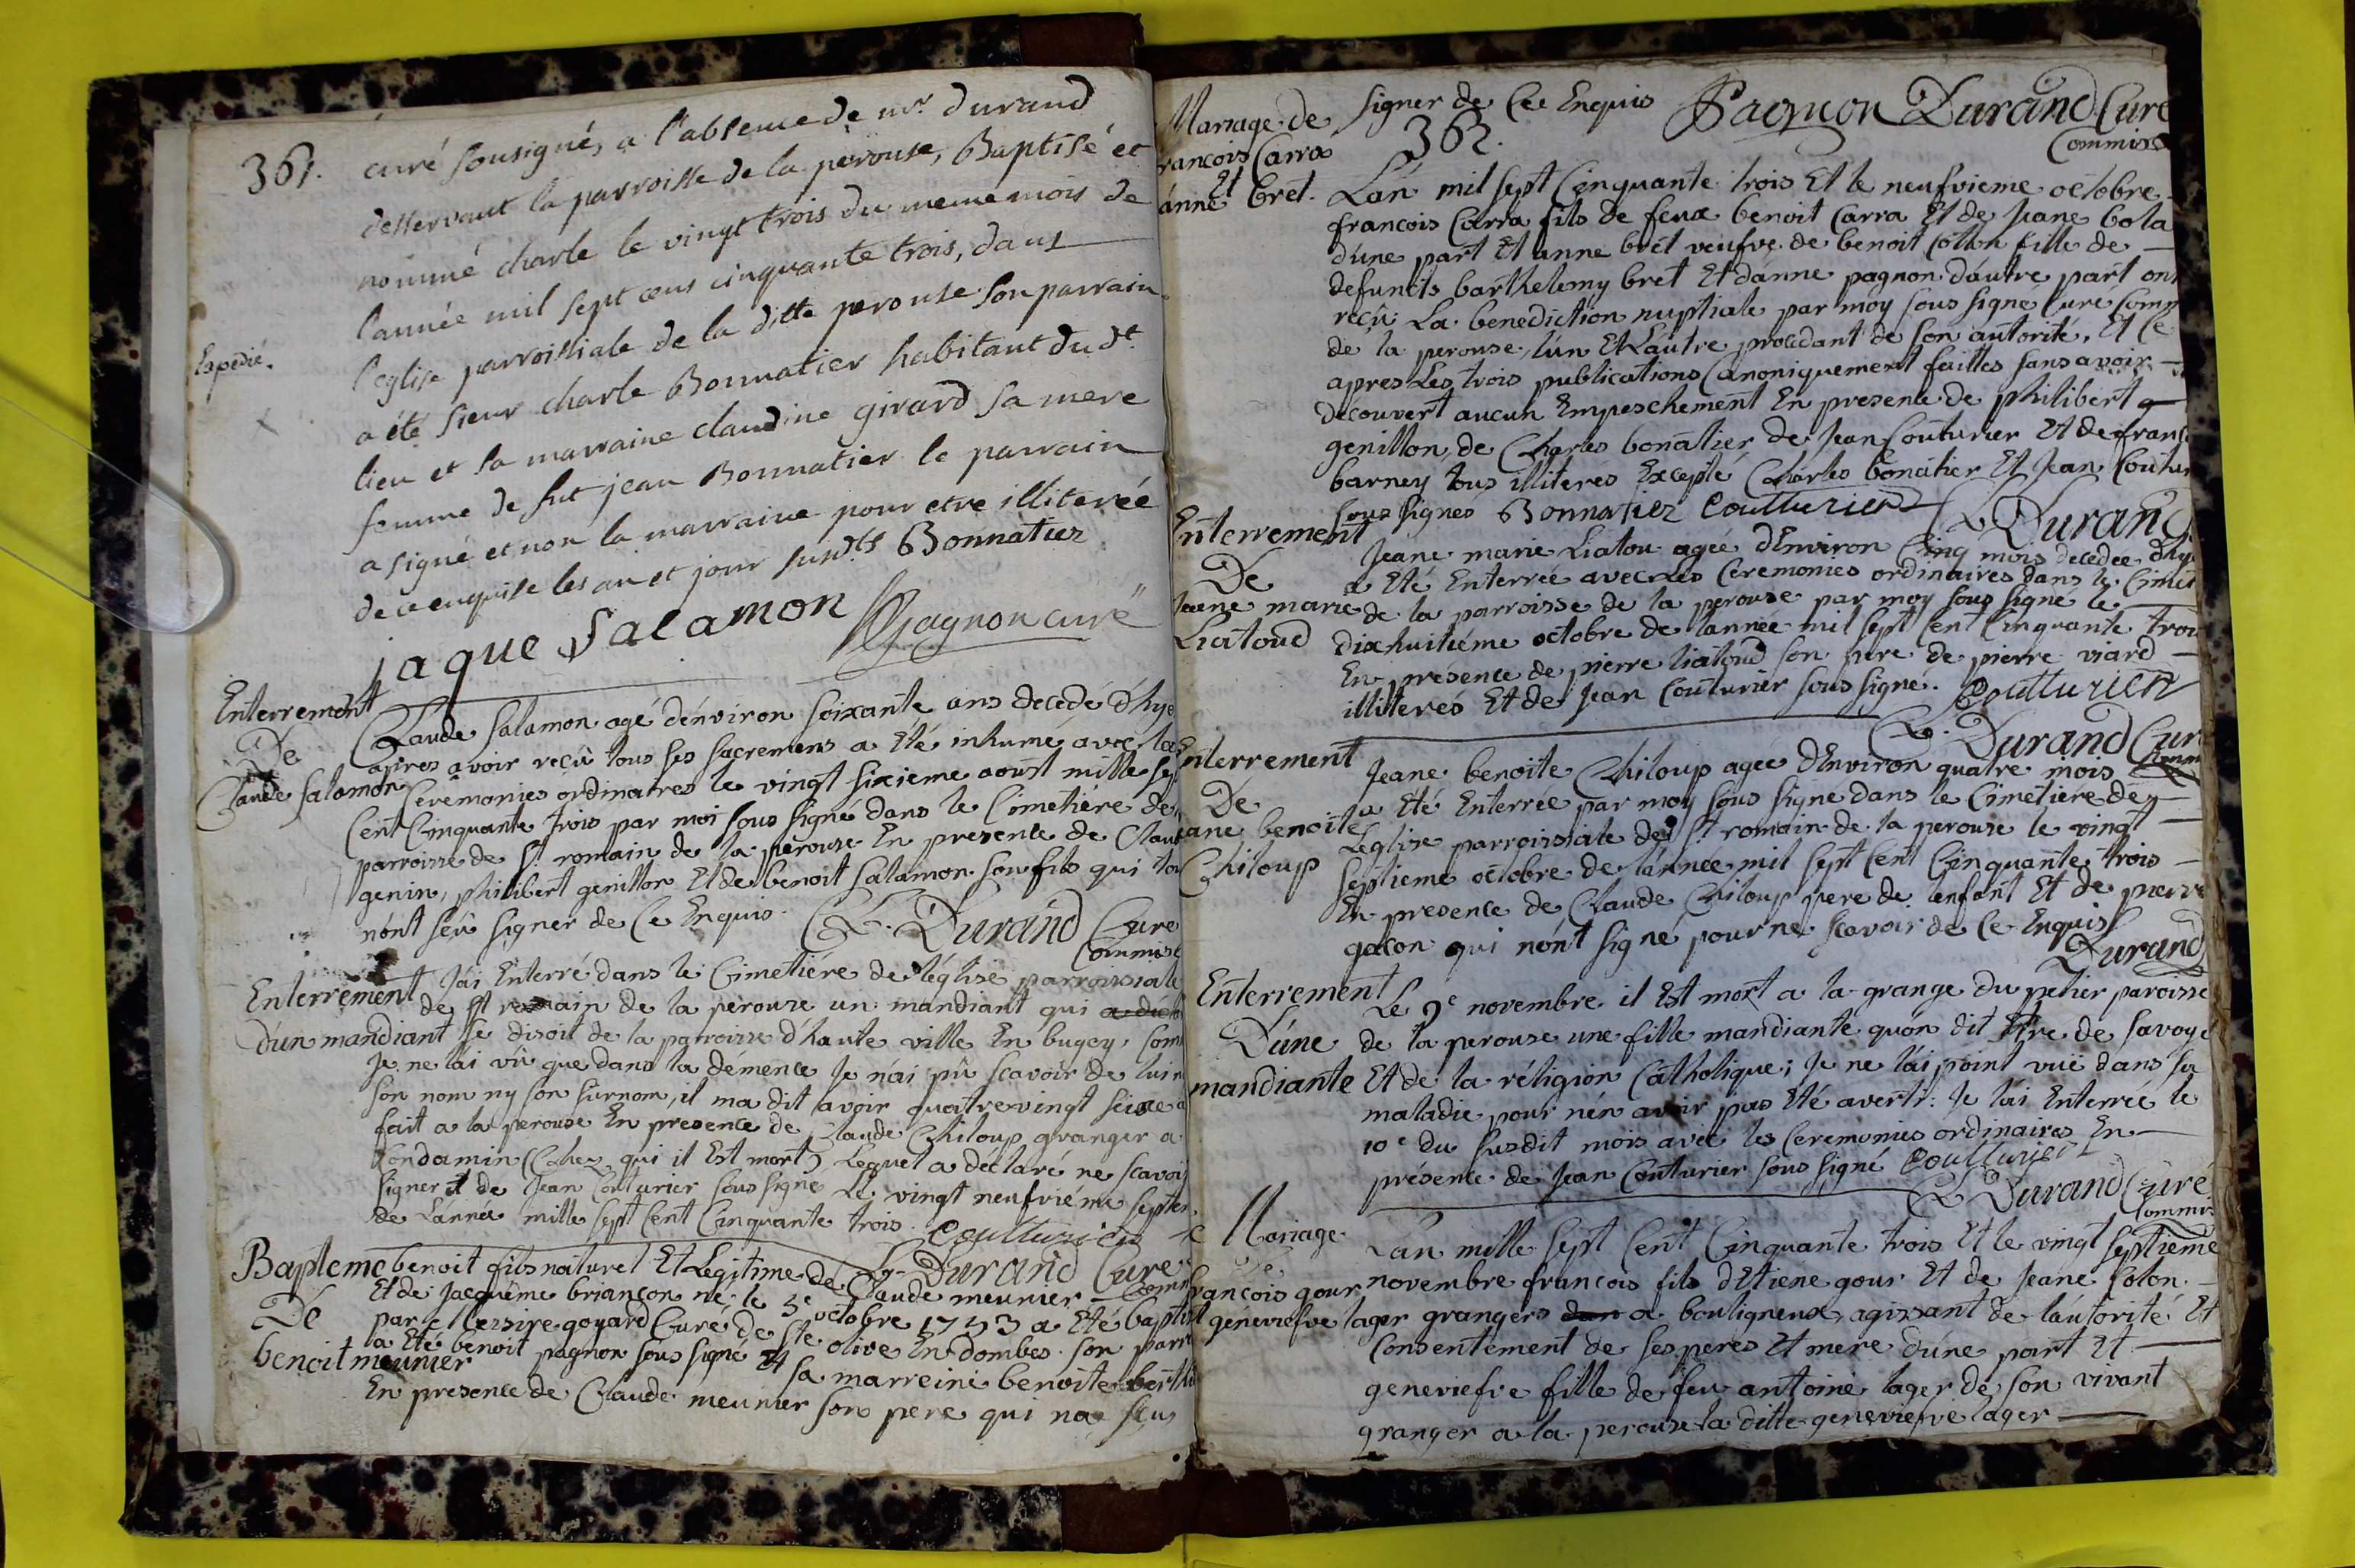 361.
curé sousigné, a l'absence de mr. durand
desservant la parroisse de la perouse, Baptisé et
nommé charle le vingt trois du meme mois de
l'année mil sept cens cinquante trois, dans
Expedié.
l'eglise parroissiale de la ditte perouse son parrain
a été sieur charle Bonnatier habitant du dt.
lieu et sa marraine claudine girard sa mere
femme de fut jean Bonnatier le parrain
a signé et non la marraine pour etre illiterée
de ce enquise les an et jour susdts Bonnatier
jaque Salamon Pagnon curé
Enterrement
De
Claude Salamon
Claude Salamon agé d'environ soixante ans decedé d'hye
apres avoir reçû tous ses sacremens a Eté inhumé avec les
Ceremonies ordinaires le vingt sixieme aoust mille sep
Cent Cinquante trois par moi sous signé dans le Cimetiére de
parroisse de St. romain de la perouse En presence de Claud
genin, philibert genillon Et de benoit Salamon son fils qui tou
nont seû signer de Ce Enquis. Durand Cure
Commis
Enterrement
d'un mandiant
J'ai Enterré dans le Cimetiére de léglise parroissiale
de St romain de la perouse un mandiant qui
se disoit de la parroisse d'haute ville En bugey, Com
Je ne lai vû que dans la démence Je nai pû scavoir de lui n
son nom ny son surnom, il ma dit avoir quatre vingt seize a
fait a la perouse En presence de Claude Chiloup granger a
Condamin (Chez qui il Est mort) Lequel a déclaré ne scavoi
signer et de Jean Couturier sous signé Le vingt neufvieme septem
de Lannée mille sept Cent Cinquante trois. Coutturier
Durand Cure
Comm
Bapteme
De
benoit meunier
benoit fils naturel Et Légitime de Claude meunier
Et de Jacquême briançon né le 3e octobre 1753 a Eté baptis
par Messire goyard Curé de Ste. olive En dombes. son parr
a Eté benoit pagnon sous signé Et sa marreine benoite berth
En presence de Claude meunier son pere qui na sçu
Mariage de
francois Carra
Et
anne bret.
signer de Ce Enquis Pagnon Durand Cure
Commis
362.
L'an mil sept Cinquante trois Et le neufvieme octobre
francois Carra fils de feux benoit Carra Et de Jeane bola
dune part Et anne bret veufve de benoit Colon fille de
defuncts barthelemy bret Et d'anne pagnon d'autre part ont
reçû La benediction nuptiale par moy sous signé Cure Comm
de la perouse, l'un Et Lautre procedant de son autorité, Et Ce
apres Les trois publications Canoniquement faittes sans avoir
découvert aucun Empeschement En presence de philibert
genillon, de Charles bonatier de Jean Couturier Et de franc
barney tous illiterés Excepté Charles bonatier Et Jean Coutu
sous signés Bonnatier Coutturier Durand
Enterrement
De
Jeane marie
Liatoud
Jeane marie Liatou agée d'Environ Cinq mois decedée d'hye
a Eté Enterrée avec Les Ceremonies ordinaires dans le Cimet
de la parroisse de la perouse par moy sous signé le
dixhuitieme octobre de lannée mil sept Cent Cinquante trois
En présence de pierre liatoud son pere de pierre viard
illiterés Et de Jean Couturier sous signé. Coutturier
Durand Cure
Comm
Enterrement
De
Jeane benoite
Chiloup
Jeane benoite Chiloup agée d'Environ quatre mois
a Eté Enterrée par moy sous signé dans le Cimetiere de
Leglise parroissiale de St romain de la perouse le vingt
septieme octobre de l'année mil sept Cent Cinquante trois
En presence de Claude Chiloup pere de lenfant Et de pierre
gacon qui nont signé pour ne scavoir de Ce Enquis
Durand
Enterrement
D'une
mandiante
Le 9e novembre il Est mort a la grange du petier paroisse
de la perouse une fille mandiante quon dit Etre de savoye
Et de la réligion Catholique; Je ne l'ai point vuë dans sa
maladie pour nen avoir pas Eté averti. Je l'ai Enterrée le
10e du susdit mois avec les Ceremonies ordinaires En
présence de Jean Couturier sous signé Coutturier
Durand Curé
Commis
Mariage
De
francois gour
Et géneviefve lager
L'an mille sept Cent Cinquante trois Et le vingt septieme
novembre francois fils d'Etiene gour Et de Jeane Colon
grangers a bouligneux, agissant de lautorité Et
Consentement de ses peres Et mere d'une part Et
geneviefve fille de feu antoine lager de son vivant
granger a la perouse la ditte geneviefve lager